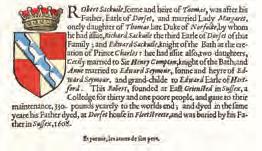 RObert Sackuile, sonne and heire of Thomas, was after his
Father, Earle of Dorset, and married Lady Margaret,
onely daughter of Thomas late Duke of Norfolke, by whom
he had issue, Richard Sackuile the third Earle of Dorset of that
Family; and Edward Sackuile, Knight of the Bath at the cre-
ation of Prince Charles: hee had issue also, two daughters;
Cecily married to Sir Henry Compton, knight of the Bath; and
Anne married to Edward Seymour, sonne and heyre of Ed-
ward Seymour, and grand-childe to Edward Earle of Hert-
ford. This Robert, founded at East Grinsted in Sussex, a
Colledge for thirty and one poore people, and gaue to their
maintenance, 330. pounds yearely to the worlds end; and dyed in the same
yeare his Father dyed, at Dorset house in Fleetstreete, and was buried by his Fa-
ther in Sussex, 1608.
Et portoit, les armes de son pere.